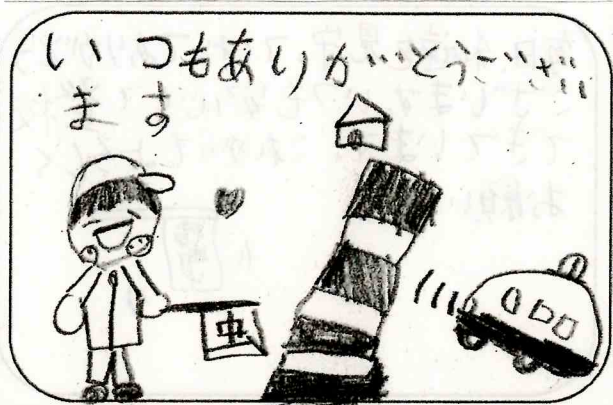 いつもありがとうござい
ます
虫